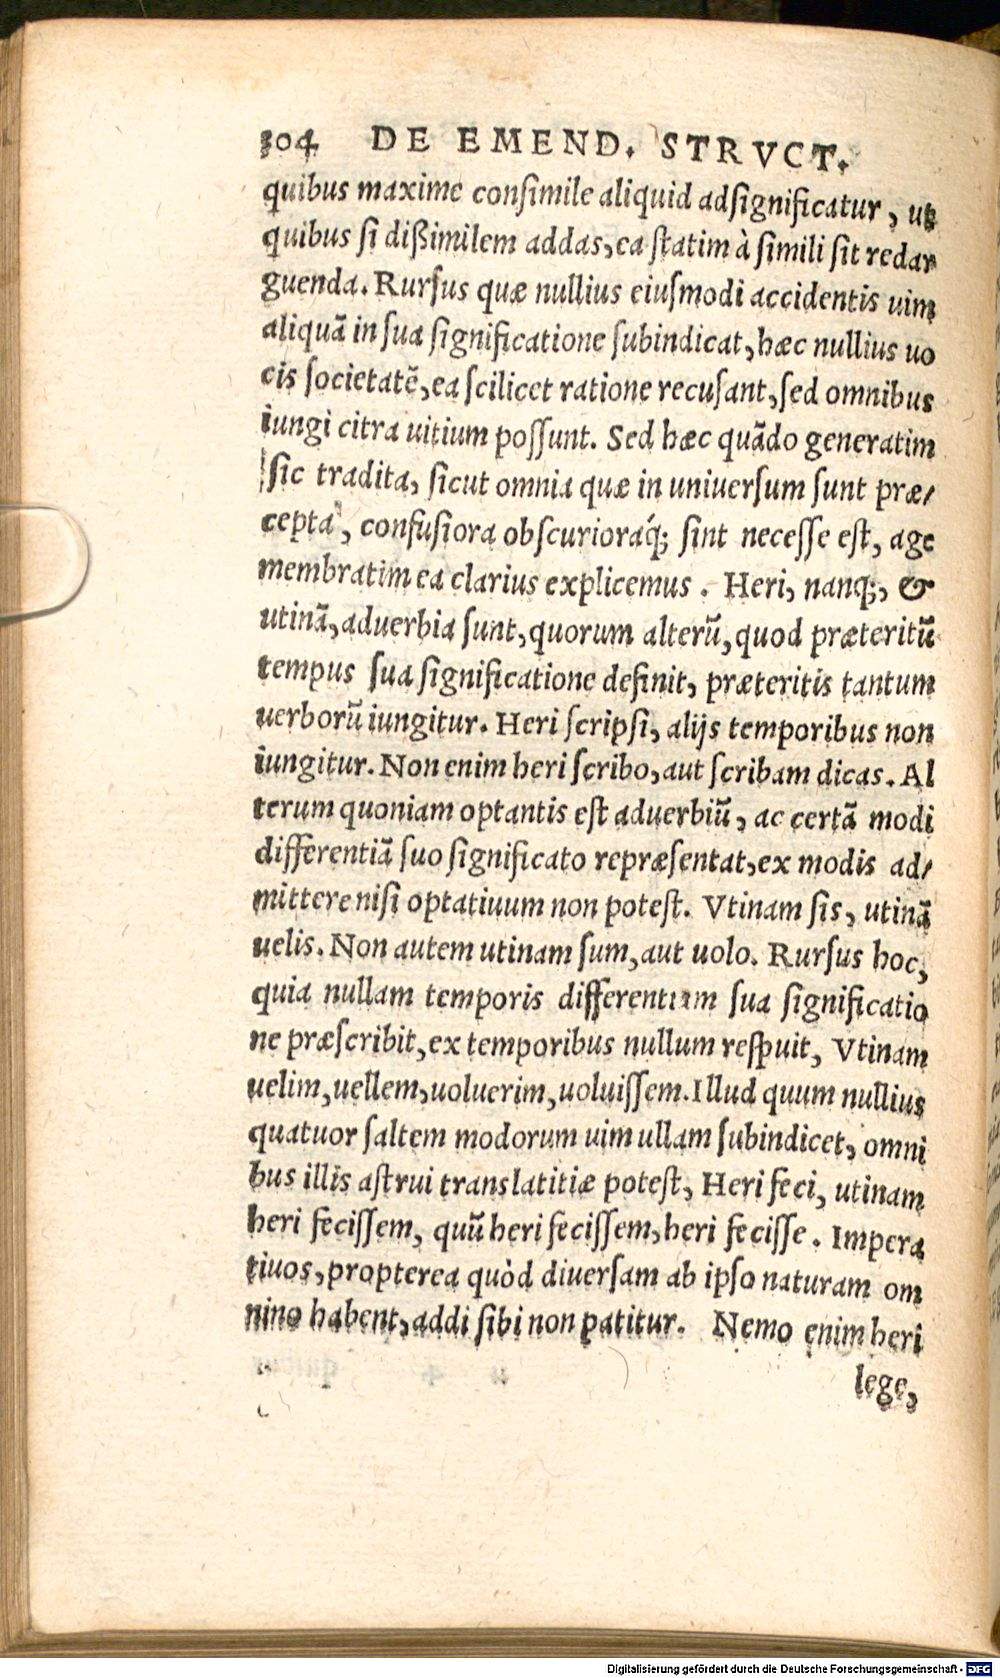 304 DE EMEND. STRVCT.
quibus maxime consimile aliquid adsignificatur, ut
quibus si dißimilem addas, ea statim à simili sit redar
guenda. Rursus quæ nullius eiusmodi accidentis uim
aliquã in sua significatione subindicat, hæc nullius uo
cis societatẽ, ea scilicet ratione recusant, sed omnibus
iungi citra uitium possunt. Sed hæc quãdo generatim
sic tradita, sicut omnia quæ in uniuersum sunt præ-
cepta, confusiora obscurioraq́; sint necesse est, age
membratim ea clarius explicemus. Heri, nanq;, &
utinã, aduerbia sunt, quorum alterũ, quod præteritũ
tempus sua significatione definit, præteritis tantum
uerborũ iungitur. Heri scripsi, alijs temporibus non
iungitur. Non enim heri scribo, aut scribam dicas. Al
terum quoniam optantis est aduerbiũ, ac certã modi
differentiã suo significato repræsentat, ex modis ad-
mittere nisi optatiuum non potest. Vtinam sis, utinã
uelis. Non autem utinam sum, aut uolo. Rursus hoc,
quia nullam temporis differentiam sua significatio
ne præscribit, ex temporibus nullum respuit, Vtinam
uelim, uellem, uoluerim, uoluissem. Illud quum nullius
quatuor saltem modorum uim ullam subindicet, omni
bus illis astrui translatitiæ potest, Heri feci, utinam
heri fecissem, quũ heri fecissem, heri fecisse. Impera
tiuos, propterea quòd diuersam ab ipso naturam om
nino habent, addi sibi non patitur. Nemo enim heri
lege,
Digitalisierung gefördert durch die Deutsche Forschungsgemeinschaft - DFG